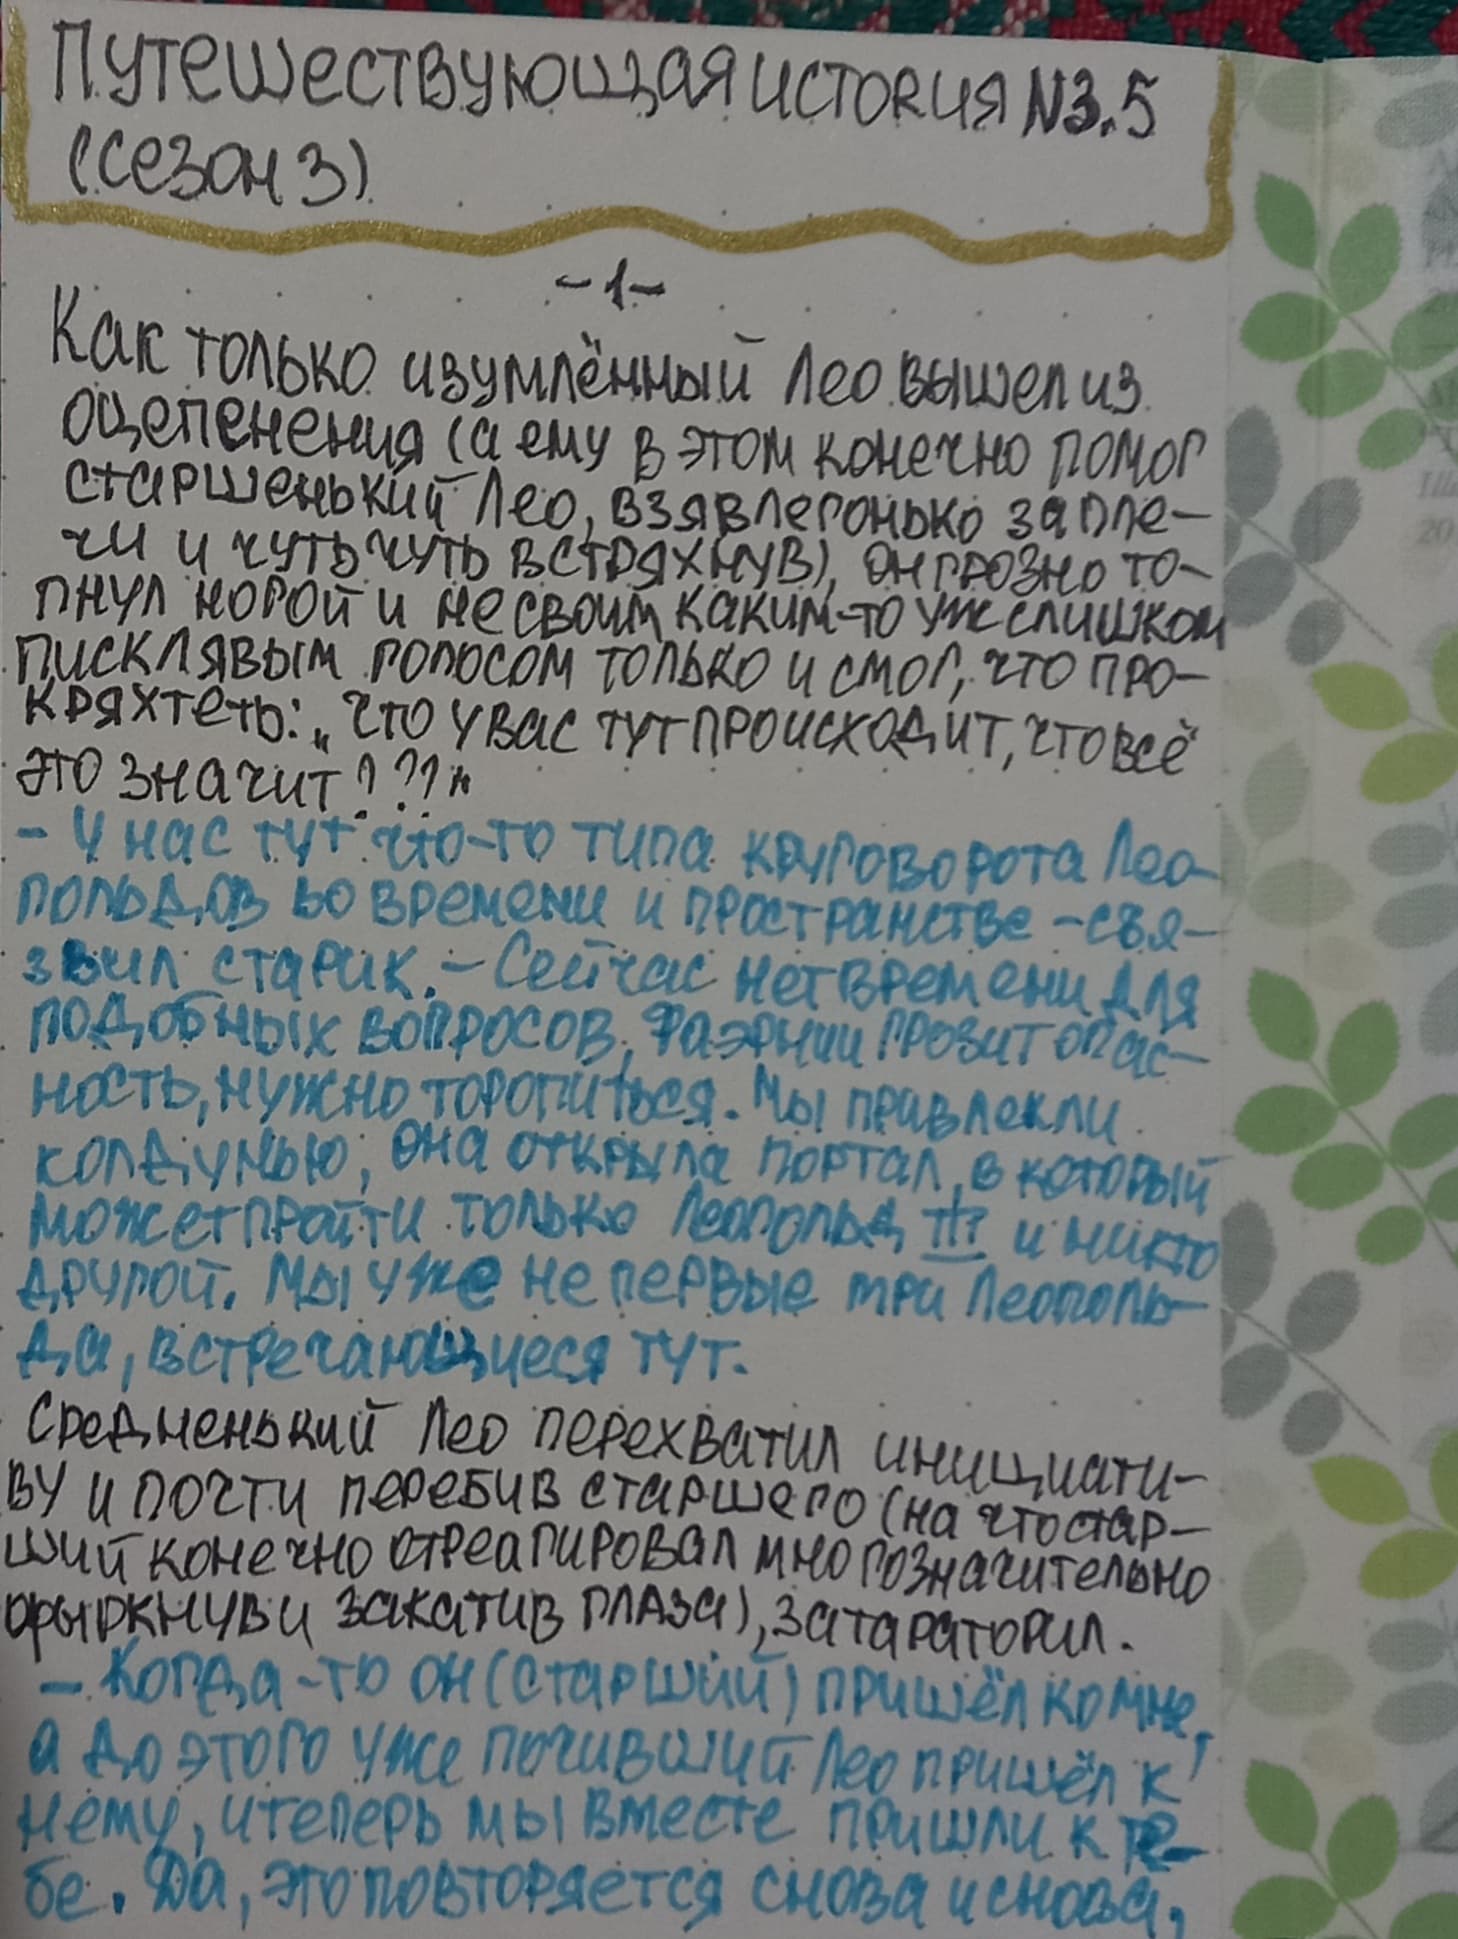 Путешествующая история №3.5
(сезон 3)
-1-
Как только изумлённый Лео вышел из
оцепенения (а ему в этом конечно помог
старшенький Лео, взяв легонько за пле-
чи и чуть чуть встряхнув), он грозно то-
пнул ногой и не своим каким-то уж слишком
писклявым голосом только и смог, что про-
кряхтеть: „что у вас тут происходит, что всё
это значит???"
- У нас тут что-то типа круговорота Лео-
польдов во времени и пространстве - съя-
звил старик. - Сейчас нет времени для
подобных вопросов, Фаэрнии грозит опас-
ность, нужно торопиться. Мы привлекли
колдунью, она открыла портал, в который
может пройти только Леопольд III и никто
другой. Мы уже не первые три Леополь-
да, встречающиеся тут.
Средненький Лео перехватил инициати-
ву и почти перебив старшего (на что стар-
ший конечно отреагировал многозначительно
фыркнув и закатив глаза), затараторил.
- Когда-то он (старший) пришёл ко мне,
а до этого уже почивший Лео пришёл к
нему, и теперь мы вместе пришли к те-
бе. Да, это повторяется снова и снова,